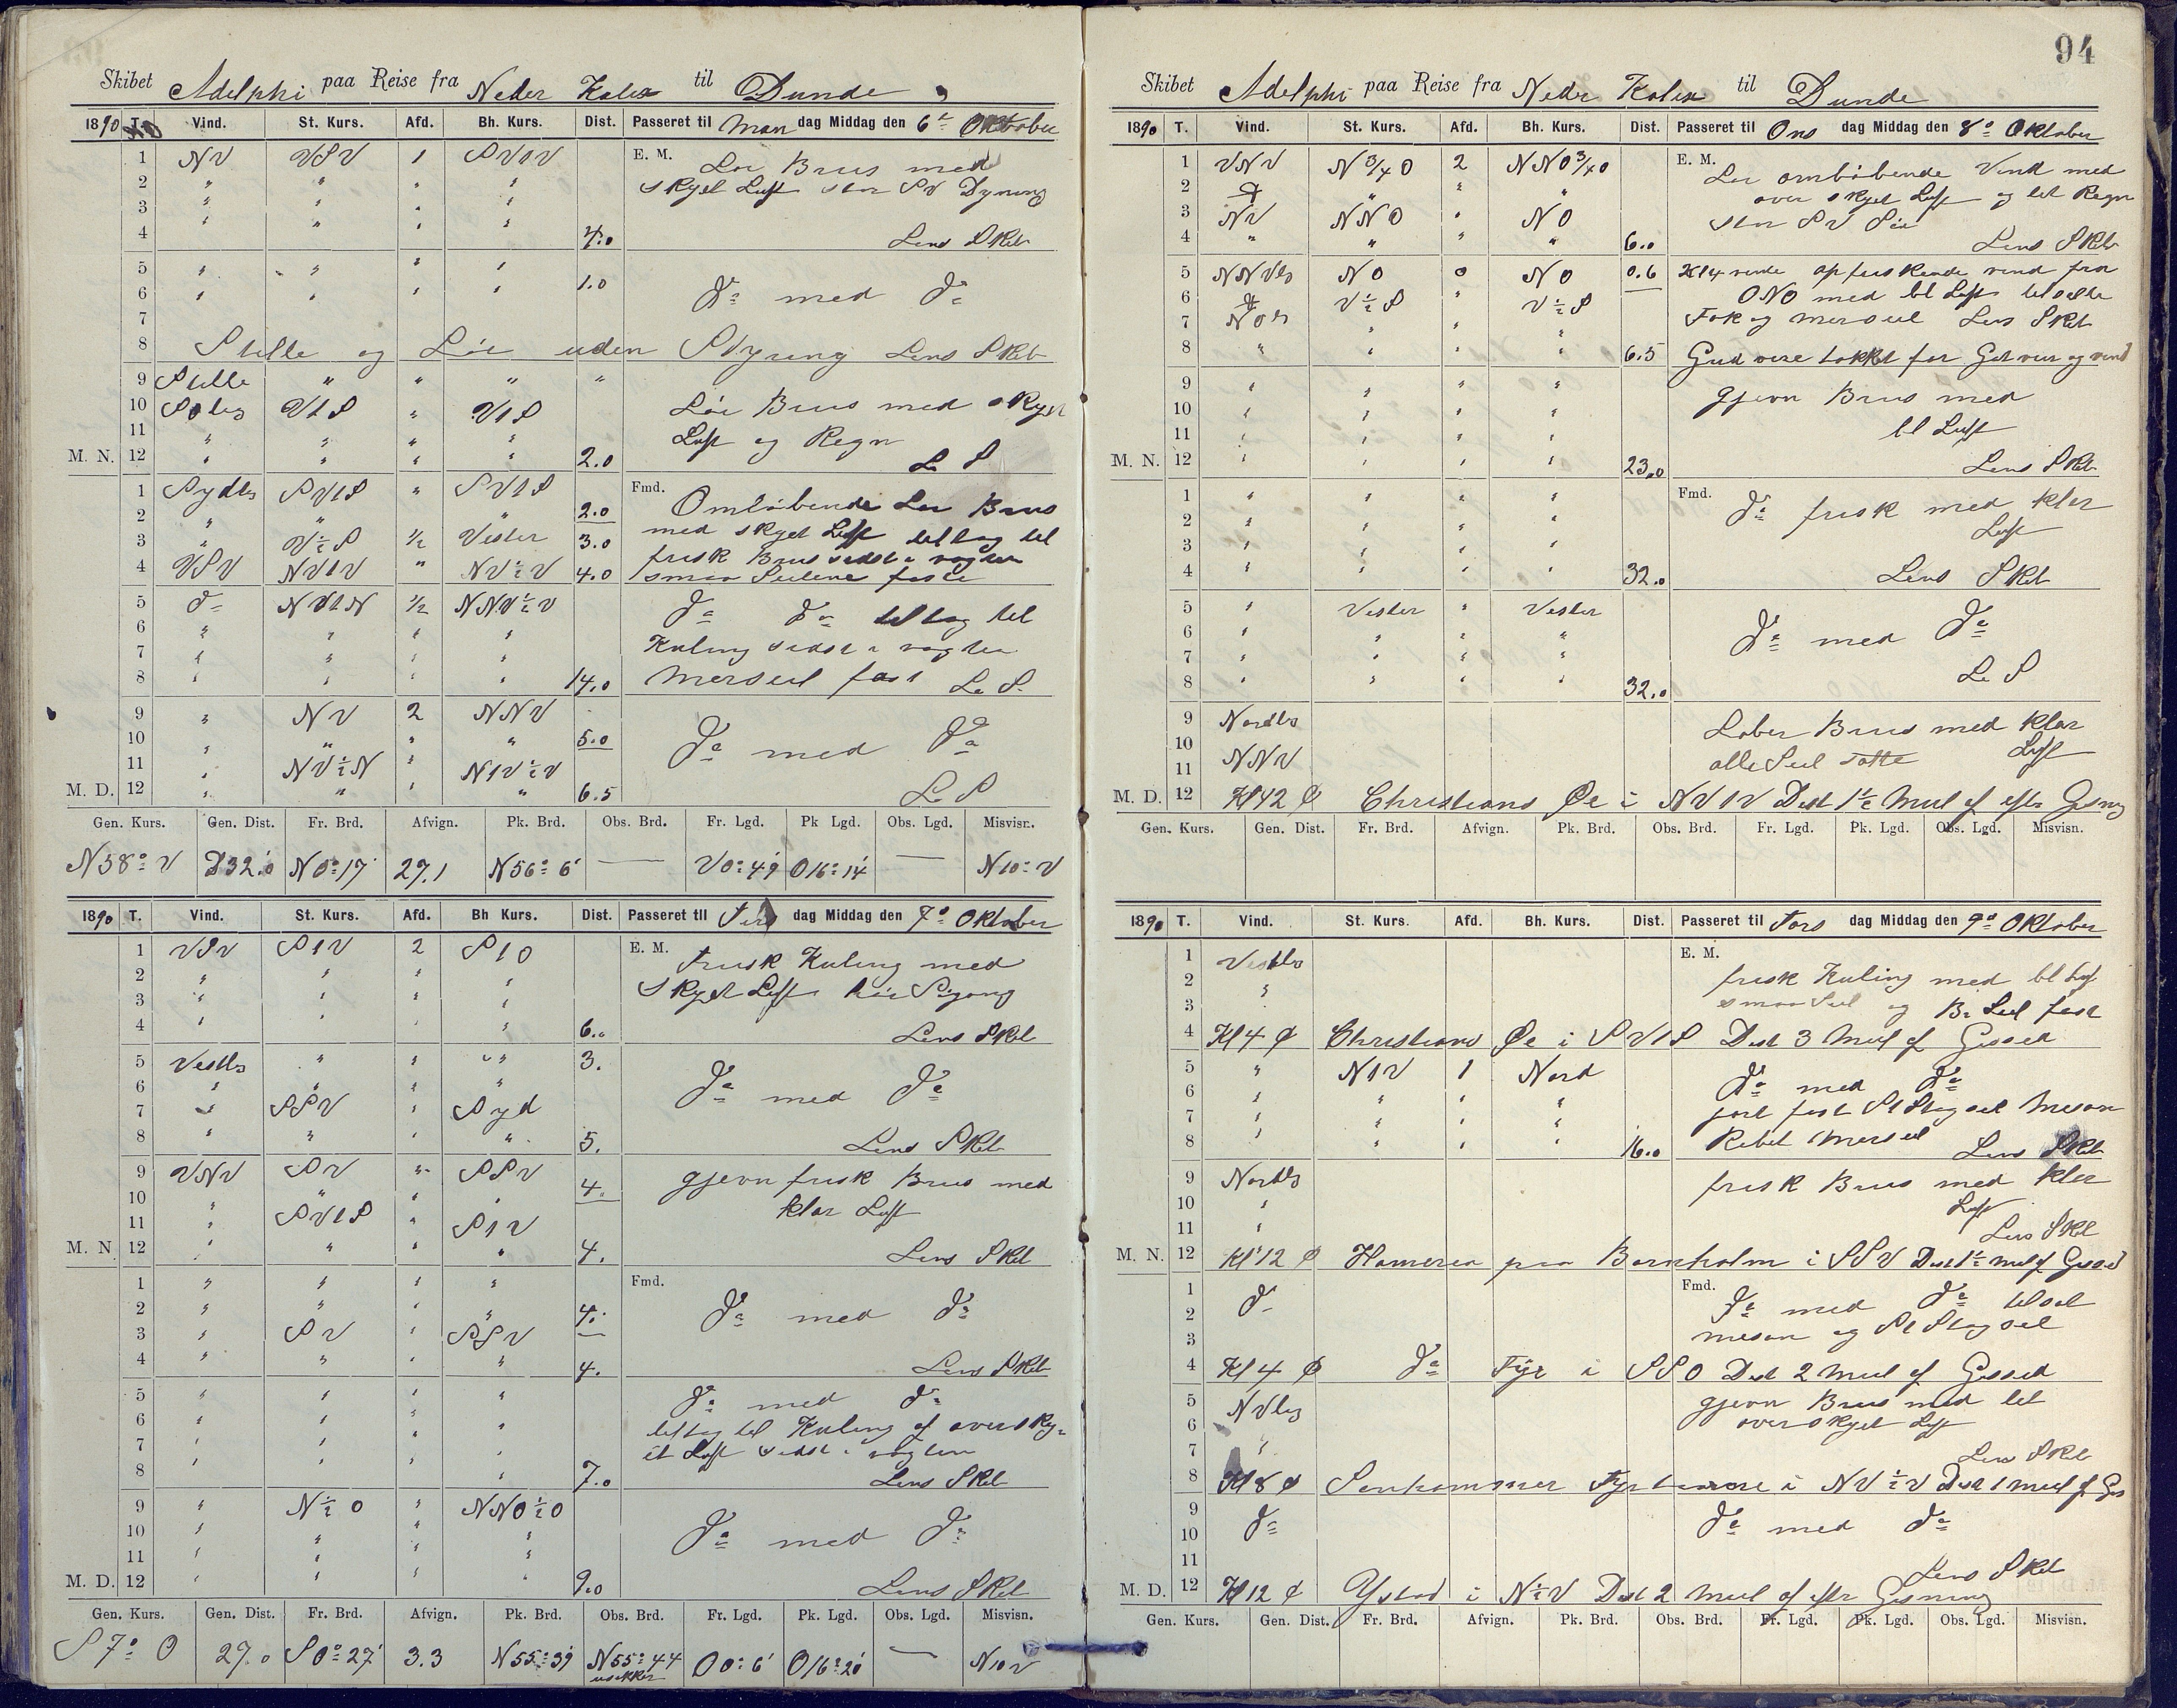 Skibet Adelphi paa Reise fra Neder Kalix til Dunde
1890 T. Vind. St. Kurs. Afd. Bh. Kurs. Dist. Passeret til Man dag Middag den 6te Oktober
1 NV VSV 1 SV1V E. M. Lor Brus med
2 " " " " skyet Luft stor SV Dyning
3 " " " "
4 " " " " 4.0 Lens Skib
5 " " " "
6 " " " " 1.0 Do med Do
7
8 Stille og Lor uden Styring Lens Skib
9 Stille " " " "
10 SOlig V1S " V1S Lor Brus med skyet
11 " " " " Luft og Regn
M. N. 12 " " " " 2.0 L S
1 Sydlig SV1S " SV1S Fmd. Omlobende Lor Brus
2 " " " 2.0 med skyet Luft tiltog til
3 " V½S ½ Vester 3.0 frisk Brus sidst i vagten
4 VSV NV1V " NV½V 4.0 smaa Seilene faste
5 Do NV1N ½ NNV½V Do Do tiltog til
6 " " " " Kuling sidst i vagten
7 " " " "
8 " " " " 14.0 Merseil fast L S
9 " NV 2 NNV
10 " " " " 5.0 Do med Do
11 " NV½N " N1V½V
M. D. 12 " " " " 6.5 L S
Gen. Kurs. Gen. Dist. Fr. Brd. Afvign. Pk. Brd. Obs. Brd. Fr. Lgd. Pk Lgd. Obs. Lgd. Misvisn.
N58°V D32.0 N0°17' 27.1 N56°6' — V0°49' O16°14' — N10°V
1890 T. Vind. St. Kurs. Afd. Bh Kurs. Dist. Passeret til Tirs dag Middag den 7de Oktober
1 VSV S1V 2 S1O E. M. Frisk Kuling med
2 " " " " skyet Luft hoi Sogang
3 " " " "
4 " " " " 6.0 Lens Skib
5 Vestlig " " " 3.
6 " " " " Do med Do
7 " SSV " Syd
8 " " " " 5. Lens Skib
9 VNV SV " SSV 4. gjevn frisk Brus med
10 " " " " klar Luft
11 " SV1S " S1V
M. N. 12 " " " " 4. Lens Skib
1 " " " " Fmd.
2 " " " " 4. Do med Do
3 " SV " SSV
4 " " " " 4. Lens Skib
5 " " " " Do med Do
6 " " " " tiltog til Kuling af oversky-
7 " " " " et Luft sidst i vagten
8 " " " " 7.0 Lens Skib
9 " N½O " NNO½O
10 " " " " Do med Do
11 " " " "
M. D. 12 " " " " 9.0 Lens Skib
Gen. Kurs. Gen. Dist. Fr. Brd. Afvign. Pk. Brd. Obs. Brd. Fr. Lgd. Pk. Lgd. Obs. Lgd. Misvisn.
S7°O 27.0 S0°27' 3.3 N55°39' N55°44 usikker O0°6' O16°20' — N10V
94
Skibet Adelphi paa Reise fra Neder Kalix til Dunde
1890 T. Vind. St. Kurs. Afd. Bh. Kurs. Dist. Passeret til Ons dag Middag den 8de Oktober
1 VNV N¾O 2 NNO¾O E. M. Lor omlobende Vind med
2 " " " over skyet Luft og let Regn
3 NV NNO " NO stor SV Sö
4 " " " " 6.0 Lens Skib
5 NNVlig NO 0 NO 0.6 Kl 4 vende opfriskende vind fra
6 V½S " V½S ONO med bl Luft tilsatte
7 NOlig " " " Fok og Merseil Lens Skib
8 " " " " 6.5 Gud vere takket for Got veir og vind
9 " " " " gjevn Brus med
10 " " " "
11 " " " " bl Luft
M. N. 12 " " " " 23.0 Lens Skib
1 " " " " Fmd. Do frisk med klar
2 " " " " Luft
3 " " " "
4 " " " " 32.0 Lens Skib
5 " Vester " Vester
6 " " " " Do med Do
7 " " " "
8 " " " " 32.0 L S
9 Nordlig Laber Brus med klar
10 NNV alle Seil satte Luft
11
M. D. 12 Kl 12 P Christians Øe i NV1V Dist 1½ Mil af eftr Gisning
Gen. Kurs. Gen. Dist. Fr. Brd. Afvign. Pk. Brd. Obs. Brd. Fr. Lgd. Pk. Lgd. Obs. Lgd. Misvisn.
1890 T. Vind. St. Kurs. Afd. Bh. Kurs. Dist. Passeret til Tors dag Middag den 9de Oktober
1 Vestlig E. M.
2 " frisk Kuling med bl Luft
3 smaa Seil og Br Seil fast
4 Kl 4 P Christians Øe i SV1S Dist 3 Mil af Gisset
5 " N1V 1 Nord Do med Do
6 " " " "
7 " " " " fast St Stagseil Mesan
8 " " " " 16.0 Rebet Merseil Lens Skib
9 Nordlig frisk Brus med klar
10 " Luft
11 " Lens Skib
M. N. 12 Kl 12 P Hameren paa Bornholm i SSV Dist 1½ mil af Gisset
1 Fmd.
2 Do Do med Do tilsat
3 mesan og St Stagseil
4 Kl 4 P Do Fyr i SSO Dist 2 Mil af Gisset
5 NVlig gjevn Brus med let
6 overskyet Luft
7 " Lens Skib
8 Kl 8 P Sanhammer Fyr i NV½V Dist 1 mil af Gis
9 Do
10 Do med Do
11 Lens Skib
M. D. 12 Kl 12 P Ystad i N½V Dist 2 Mil af eftr Gisning
Gen. Kurs. Gen. Dist. Fr. Brd. Afvign. Pk. Brd. Obs. Brd. Fr. Lgd. Pk. Lgd. Obs. Lgd. Misvisn.